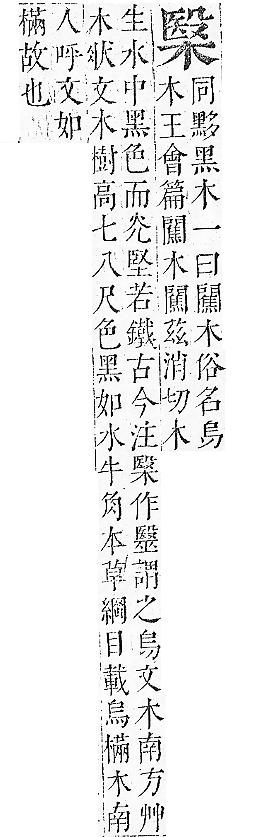 同黟黑木一曰䦨木俗名烏
木王會篇䦨木䦨兹消切木
生水中黑色而光堅若鐵古今注作謂之烏文木南方艸
木狀文木樹高七八尺色黑如水牛角本草綱目載烏樠木南
人呼文如
樠故也